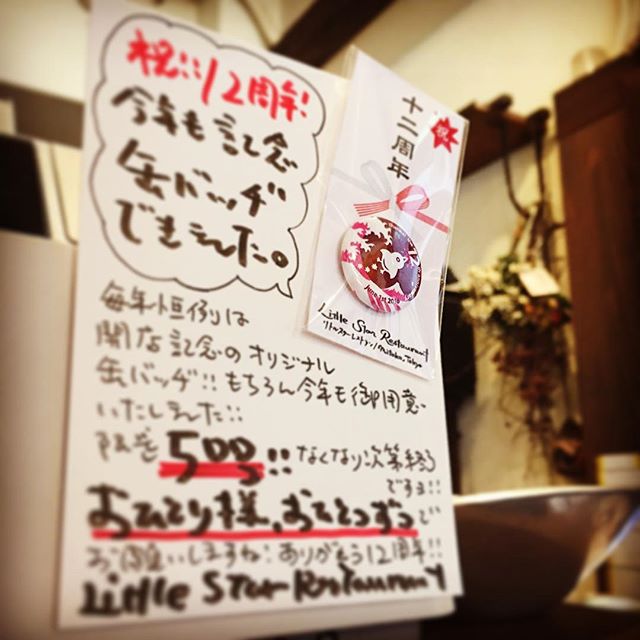 祝!!12周年!
今年も記念
缶バッヂ
できました。
毎年恒例は
開店記念のオリジナル
缶バッヂ!!もちろん今年も御用意
いたしました!!
限定500コ!!なくなり次第終了
ですヨ!!
おひとり様、おひとつずつで
お願いしますね!ありがとう12周年!!
Little Star Restaurant
祝
十二周年
Little Star Restaurant
リトルスターレストラン/Mitaka,Tokyo